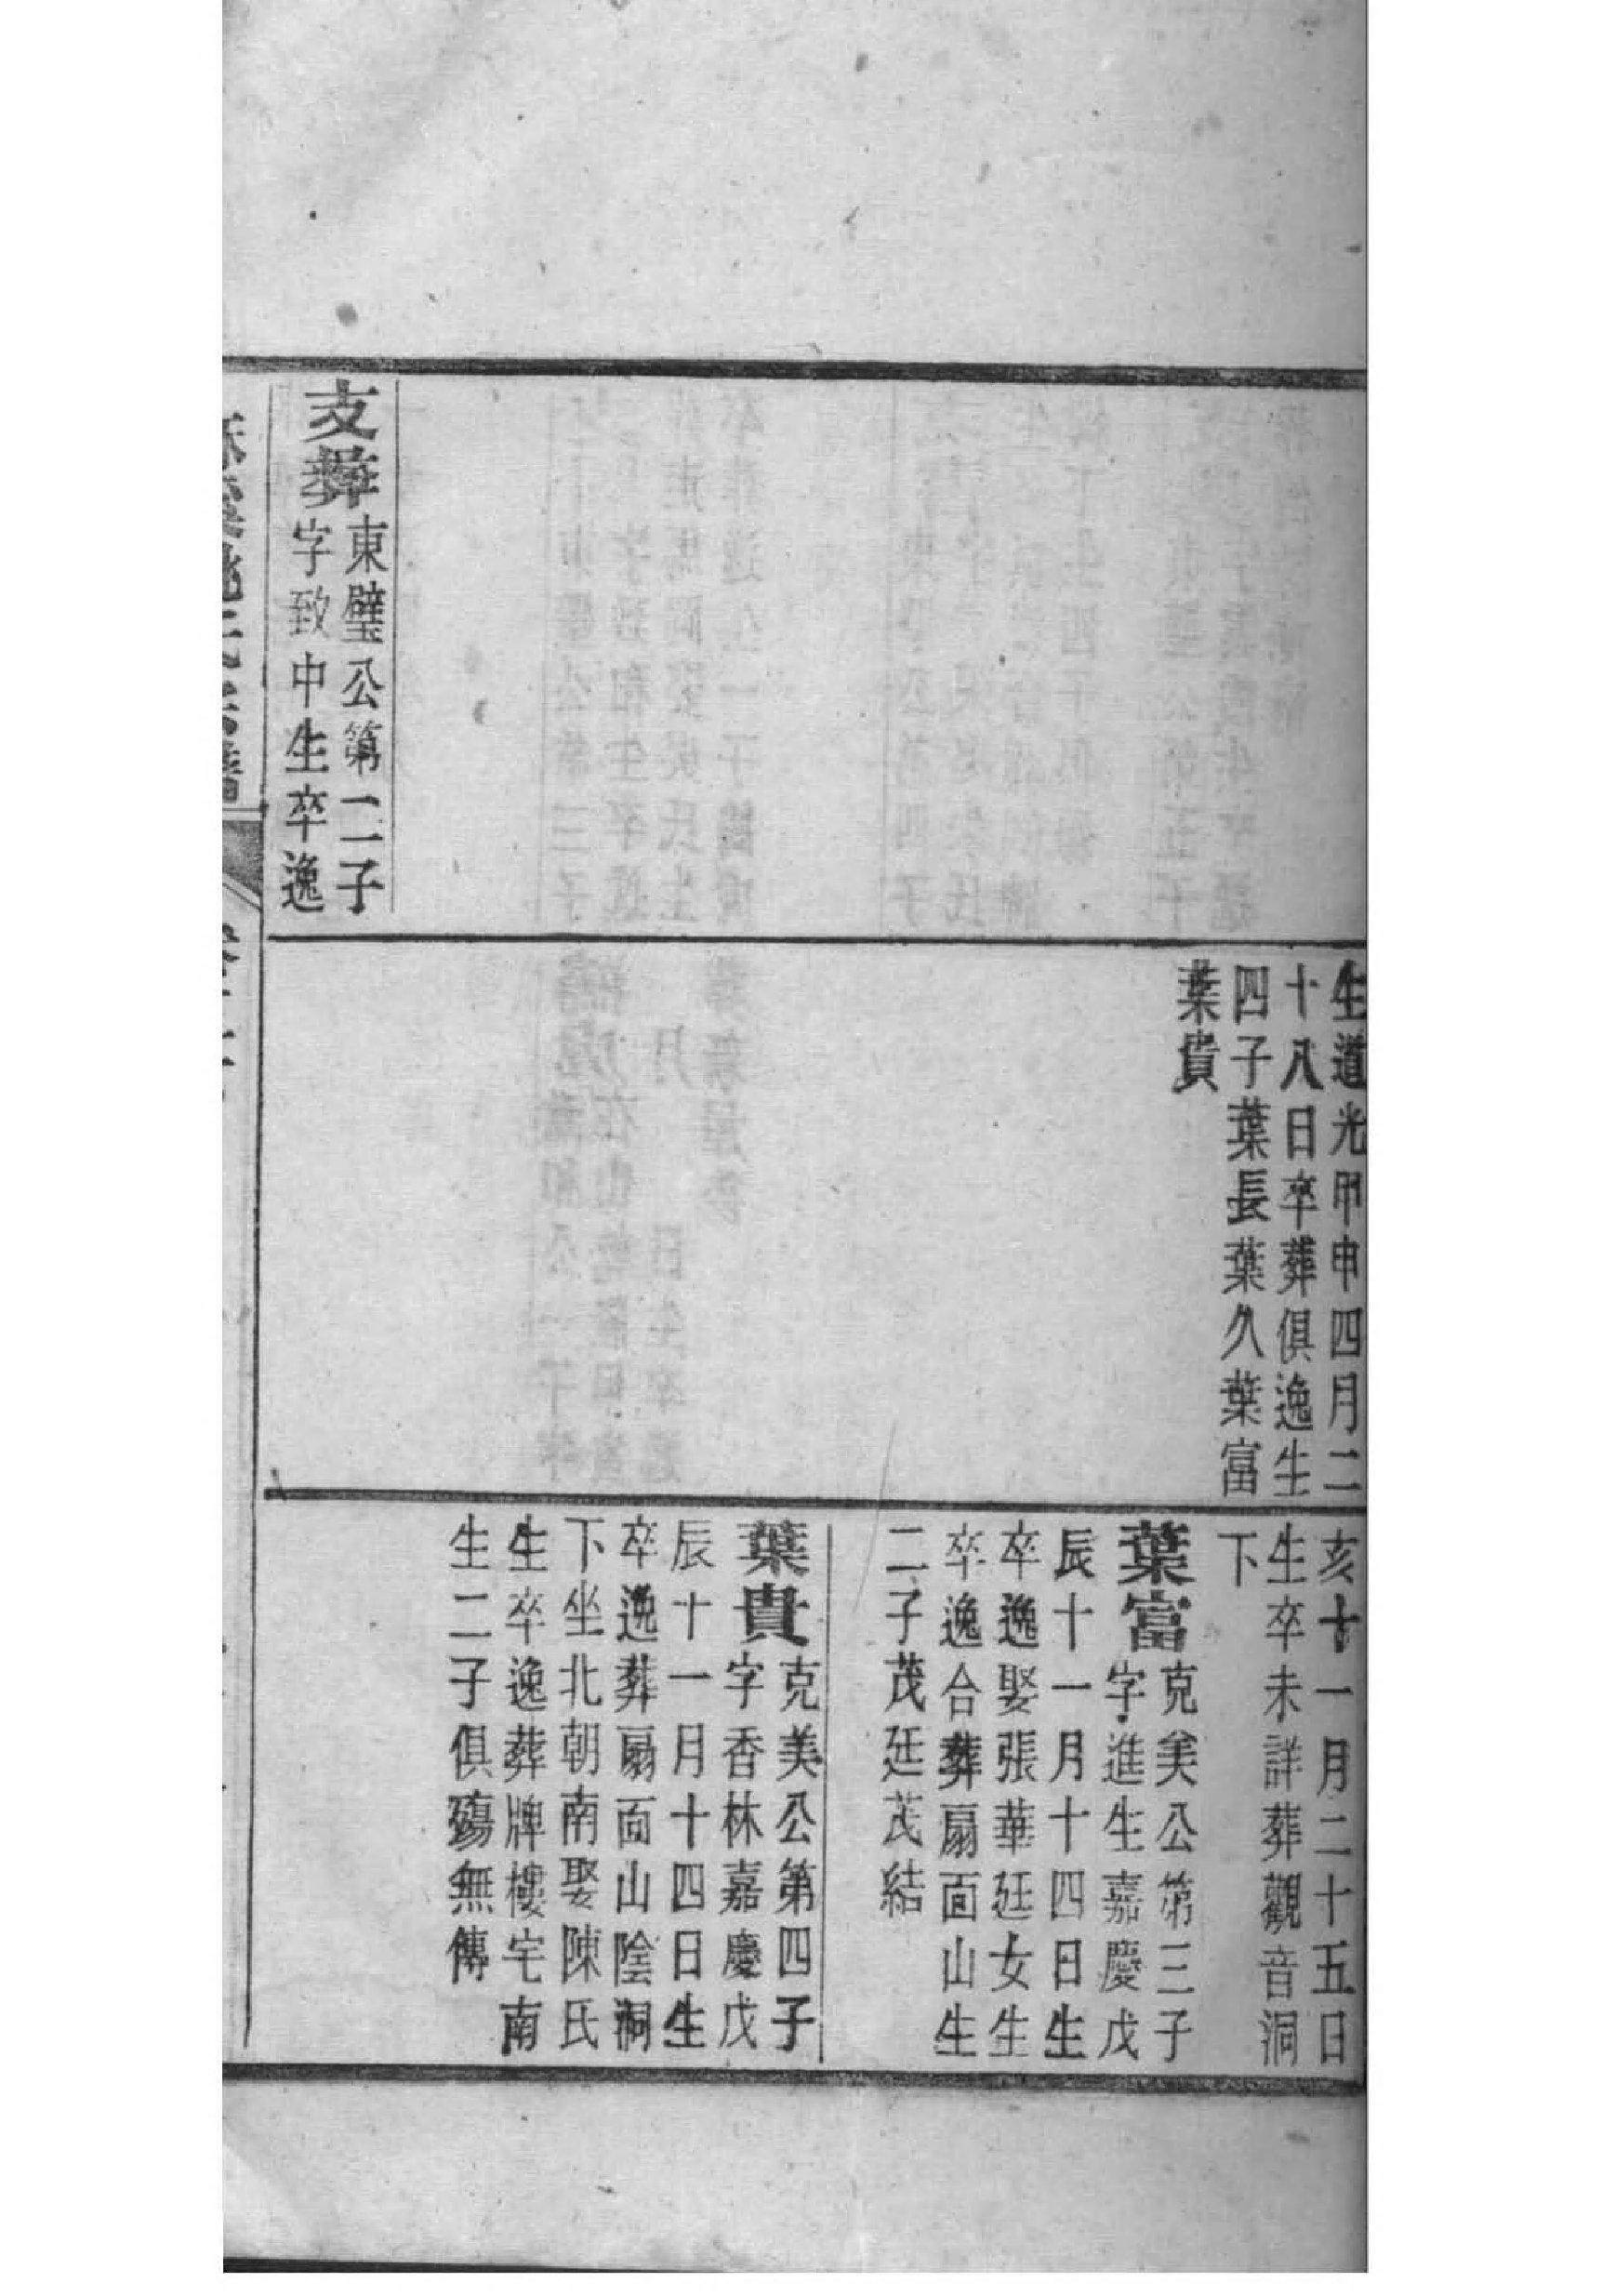 支彝
東璧公第二子
字致中生卒逸
生道光甲申四月二
十八日卒葬俱逸生
四子葉長葉久葉富
葉貴
亥十一月二十五日
生卒未詳葬觀音洞
下
葉富
克美公第三子
字進生嘉慶戊
辰十一月十四日生
卒逸娶張華廷女生
卒逸合葬扇面山生
二子茂廷茂結
葉貴
克美公第四子
字香林嘉慶戊
辰十一月十四日生
卒逸葬扇面山陰洞
下坐北朝南娶陳氏
生卒逸葬牌樓宅南
生二子俱殤無傳